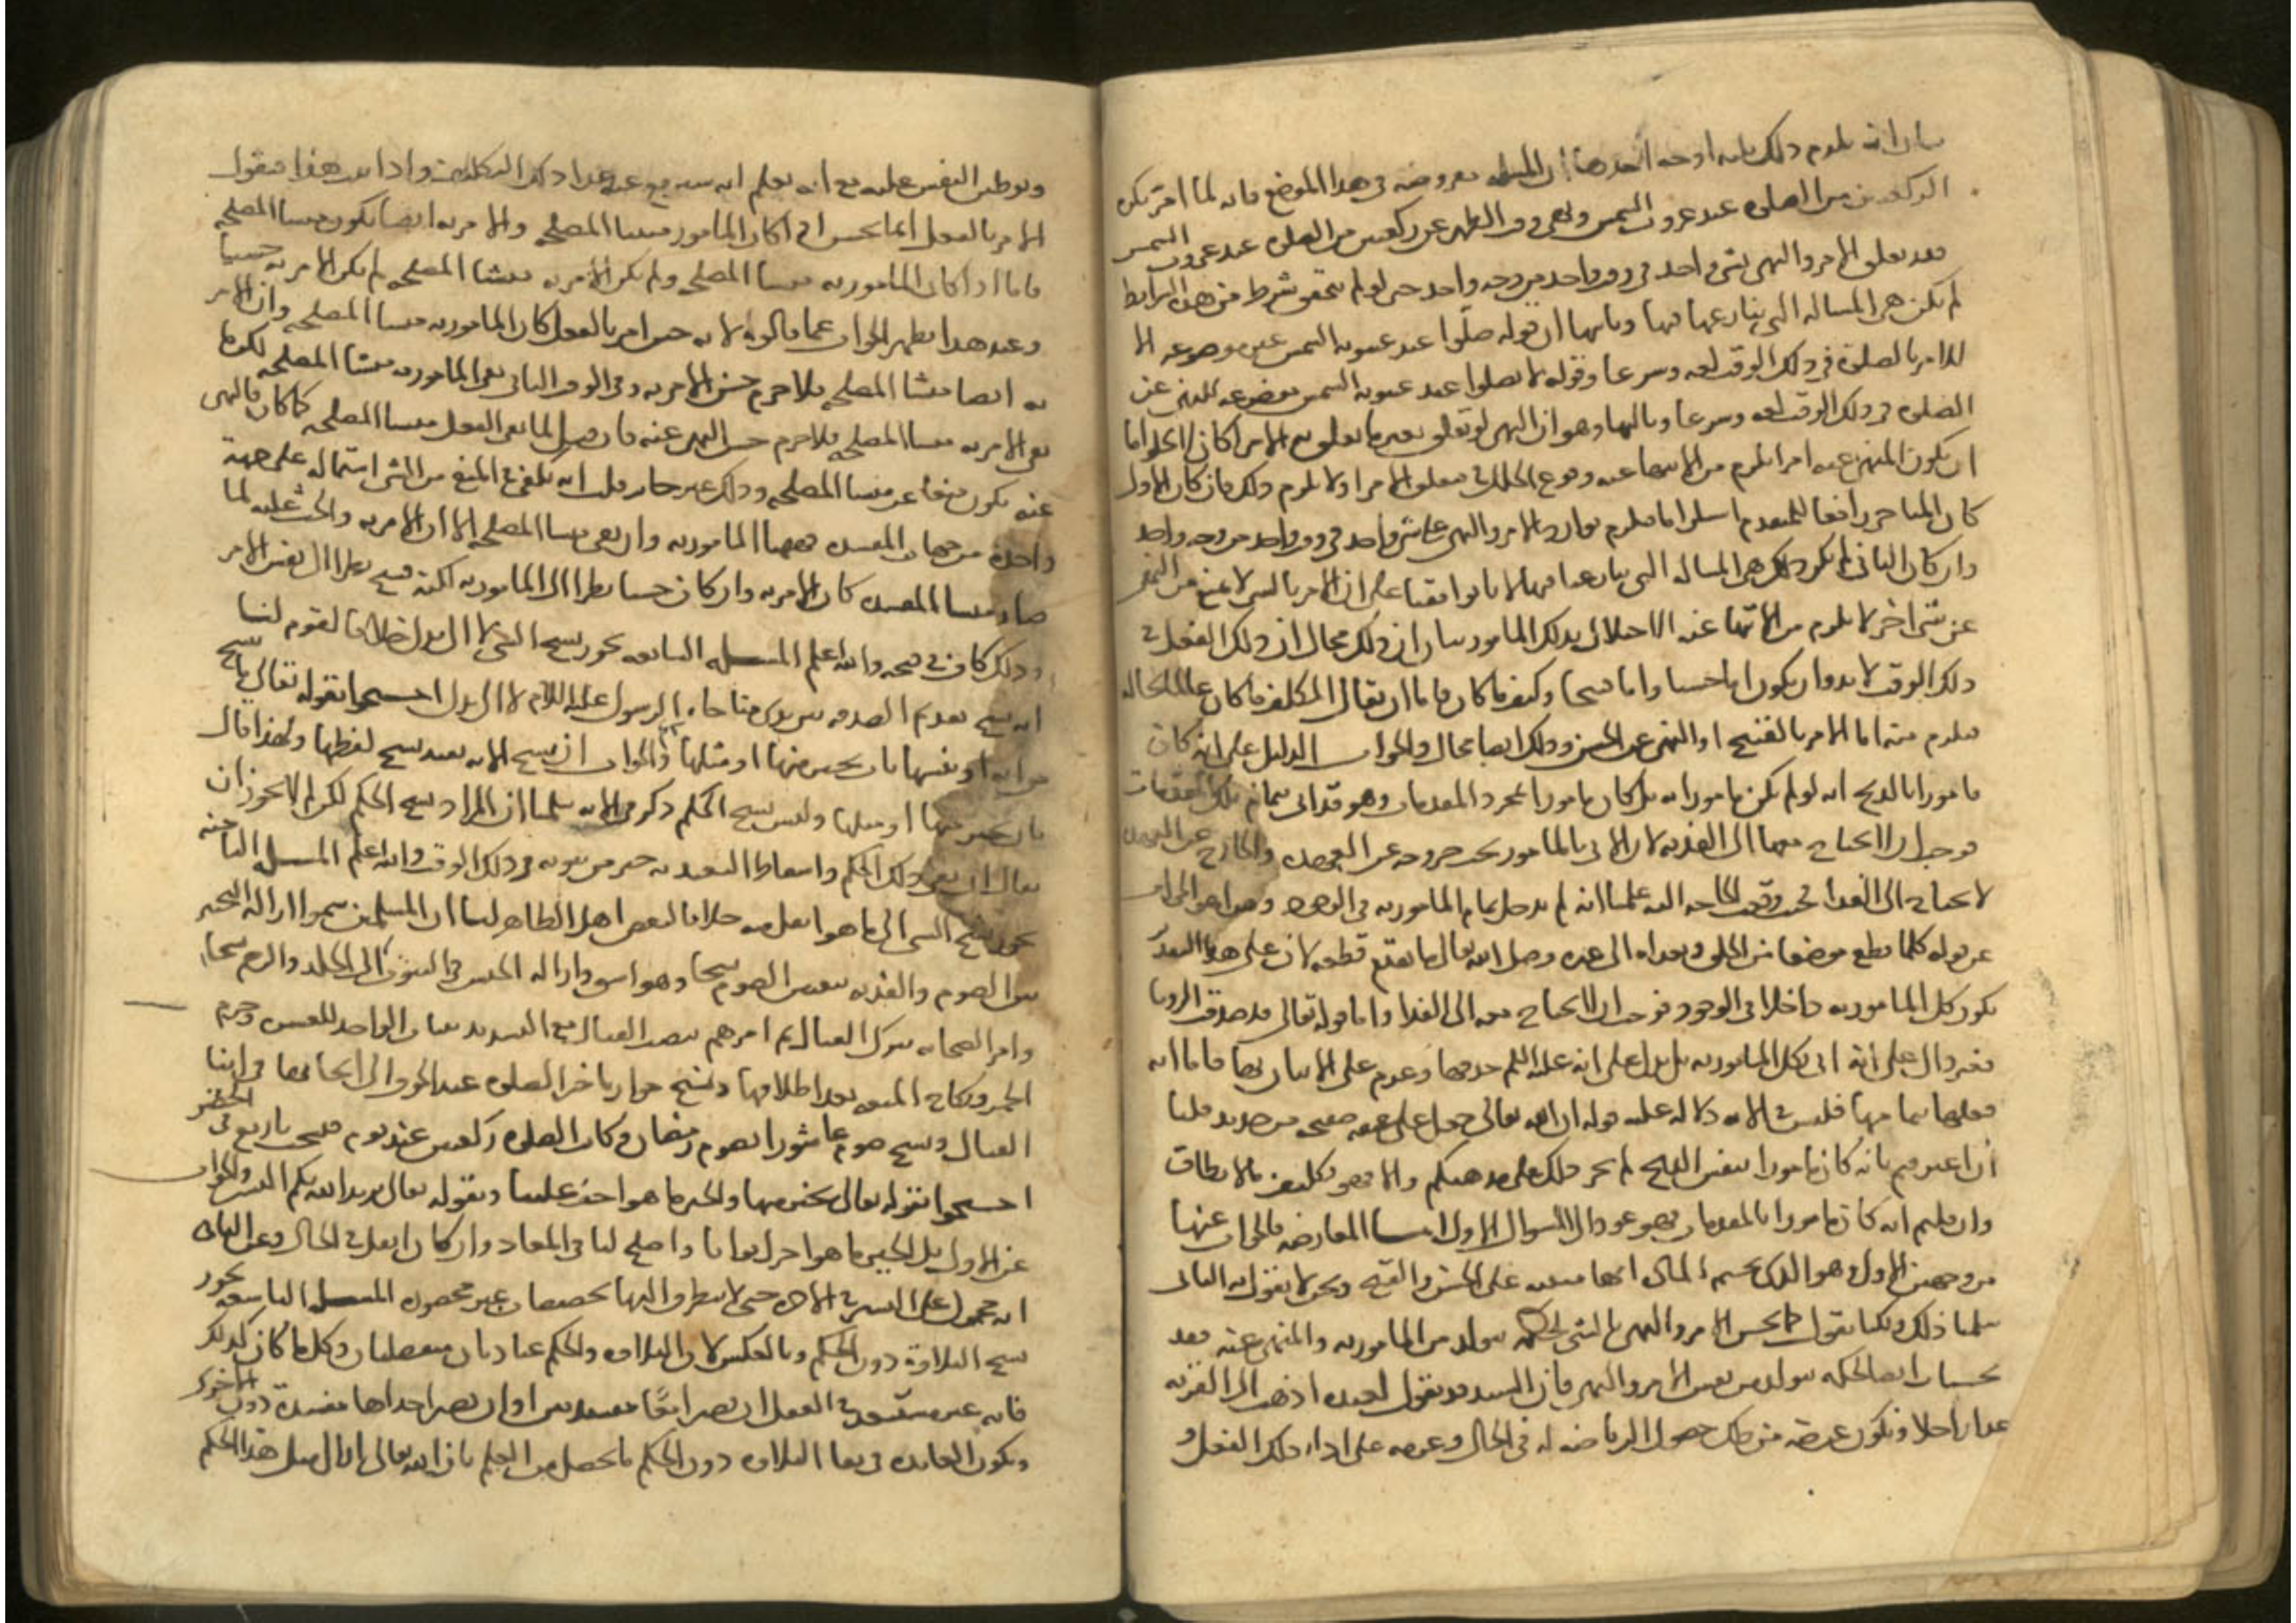 بيان انه يلزم ذلك ثلثة اوجه احدها ان المسئلة مفروضة في هذا الموضع فانه لما امر بكرة
الركعتين من الصلوة عند غروب الشمس ونهى وقت الظهر عن ركعتين من الصلوة عند غروب الشمس
فقد تعلق الامر والنهي بشي واحد في وقت واحد من وجه واحد حتى لو لم يتحقق شرط من هذه الشرايط
لم يكن هي المسالة التي يتنازعها فيها وثانيها ان قوله صلوا عند غيبوبة الشمس غير موضوعه الا
للامر بالصلوة في ذلك الوقت لغه وشرعا وقوله لا تصلوا عند غيبوبة الشمس موضوعه للنهي عن
الصلوة في ذلك الوقت لغه وشرعا وثالثها وهو ان النهي لو تعلق بغير ما تعلق به الامر لكان لا يخلو اما
ان يكون المنهي عنه امرا يلزم من الانتهاء عنه وقوع الخلل في متعلق الامر او لا يلزم ذلك فان كان الاول
كان المتاخر رافعا للمتقدم استلزاما فيلزم توارد الامر والنهي على شي واحد في وقت واحد من وجه واحد
وان كان الثاني لم يكن ذلك هي المسالة التي تنازعنا فيها لانا توافقنا على ان الامر بالشي لا يمنع من النهي
عن شي اخر لا يلزم من الانتهاء عنه الاخلال بذلك المامور بيان ان ذلك محال ان ذلك الفعل في
ذلك الوقت لا بد وان يكون اما حسنا واما قبيحا وكيف ما كان فاما ان يقال المكلف ما كان عالما بحاله
فيلزم منه اما الامر بالقبيح او النهي عن الحسن وذلك ايضا محال والجواب الدليل على انه كان
مامورا بالذبح انه لو لم يكن مامورا به بل كان مامورا بمجرد المقدمات وهو قد اتى بتمام تلك المقدمات
فوجب ان لا يحتاج معها الى الفدية لان الاتي بالمامور يجب خروجه عن العهدة والخارج عن العهدة
لا يحتاج الى الفدا فحيث وقعت الحاجة اليه علمنا انه لم يدخل تمام المامور به في الوجود وهذا هو الجواب
عن قوله كلما قطع موضعا من الحلق وتعداه الى غيره وصل الله تعالى ما تقدم قطعه لان على هذا التقدير
يكون كل المامور به داخلا في الوجود فوجب ان لا يحتاج معه الى الفدا واما قوله تعالى قد صدقت الرويا
فغير دال على انه اتى بكل المامور به بل يدل على انه عليه السلم صدقها وعزم على الاتيان بها فاما انه
فعلها بتمامها فليس في الاية دلالة عليه قوله ان الله تعالى جعل على عنقه صفيحه من حديد قلنا
ان اعترفتم بانه كان مامورا بنفس الذبح لم يجز ذلك على مذهبكم والا فهو تكليف ما لا يطاق
وان قلتم انه كان مامورا بالمقدمات فهو عود الى السوال الاول اما المعارضة فالجواب عنها
من وجهين الاول وهو الذي يحسم المادة انها مبنية على الحسن والقبح ونحن لا نقول به الثاني
سلمنا ذلك ولكنا نقول كما يحسن الامر والنهي بالشي لحكمة تتولد من المامور به والمنهي عنه فقد
يحسنان ايضا لحكمة تتولد من نفس الامر والنهي فان السيد قد يقول لعبده اذهب الى القرية
غدا راجلا ويكون غرضه من ذلك حصول الرياضة له في الحال وعزمه على اداء ذلك الفعل و
وتوطين النفس عليه مع انه يعلم انه سيرفع عنه غدا ذلك التكليف واذا ثبت هذا فنقول
الامر بالفعل انما يحسن اذا كان المامور به منشا المصلحة والامر به ايضا يكون منشا المصلحة
فاما اذا كان المامور به منشا المصلحة ولم يكن الامر به منشا المصلحة لم يكن الامر به حسنا
وعند هذا يظهر الجواب عما قالوه لانه حين امر بالفعل كان المامور به منشا المصلحة وان الامر
به ايضا منشا المصلحة فلا جرم حسن الامر به وفي الوقت الثاني بقي المامور به منشا المصلحة لكن ما
بقي الامر به منشا المصلحة فلا جرم حسن النهي عنه فان قيل لما بقي الفعل منشا المصلحة كما كان فالنهي
عنه يكون منعا عن منشا المصلحة وذلك غير جايز قلت انه يكفي في المنع من الشي اشتماله على جهة
واحدة من جهات المفسدة فههنا المامور به وان بقي منشا المصلحة الا ان الامر به والحث عليه لما
صار منشا المفسدة كان الامر به وان كان حسنا نظرا الى المامور به لكنه قبيح نظرا الى نفس الامر
وذلك كاف في قبحه والله اعلم المسئلة السابعة يجوز نسخ الشي لا الى بدل خلافا لقوم لنا
انه نسخ تقديم الصدقة بين يدي مناجاة الرسول عليه السلام لا الى بدل احتجوا بقوله تعالى ما ننسخ
من اية او ننسها نات بخير منها او مثلها والجواب ان نسخ الاية يفيد نسخ لفظها ولهذا قال
نات بخير منها او مثلها وليس نسخ الحكم ذكر في الاية سلمنا ان المراد نسخ الحكم لكن لم لا يجوز ان
يقال ان نفي ذلك الحكم واسقاط التعبد به خير من ثبوته في ذلك الوقت والله اعلم المسئلة الثامنة
يجوز نسخ الشي الى ما هو اثقل منه خلافا لبعض اهل الظاهر لنا ان المسلمين سموا ازالة التخيير
بين الصوم والفدية بتعيين الصوم نسخا وهو اشق وازالة الحبس في البيوت الى الجلد والرجم نسخا
وامر الصحابة بترك القتال ثم امرهم بنصب القتال مع التشديد بثبات الواحد للعشرة وحرم
الخمر ونكاح المتعة بعد اطلاقها ونسخ جواز تاخير الصلوة عند الخوف الى ايجابها في اثنا
القتال ونسخ صوم عاشورا بصوم رمضان وكانت الصلوة ركعتين عند قوم فنسخت باربع في الحضر
احتجوا بقوله تعالى بخير منها والخير ما هو اخف علينا وبقوله تعالى يريد الله بكم اليسر والجواب
عن الاول بل الخير ما هو اجزل ثوابا واصلح لنا في المعاد وان كان اثقل في الحال وعن الثاني
انه محمول على اليسر في الاخرة حتى لا يتطرق اليها تخصيصات غير محصورة المسئلة التاسعة يجوز
نسخ التلاوة دون الحكم وبالعكس لان التلاوة والحكم عبادتان منفصلتان وكل ما كان كذلك
فانه غير مستبعد في العقل ان يصيرا معا مفسدتين او ان تصير احداهما مفسدة دون الاخرى
وتكون الفايدة في بقا التلاوة دون الحكم ما يحصل من العلم بان الله تعالى انزل مثل هذا الحكم